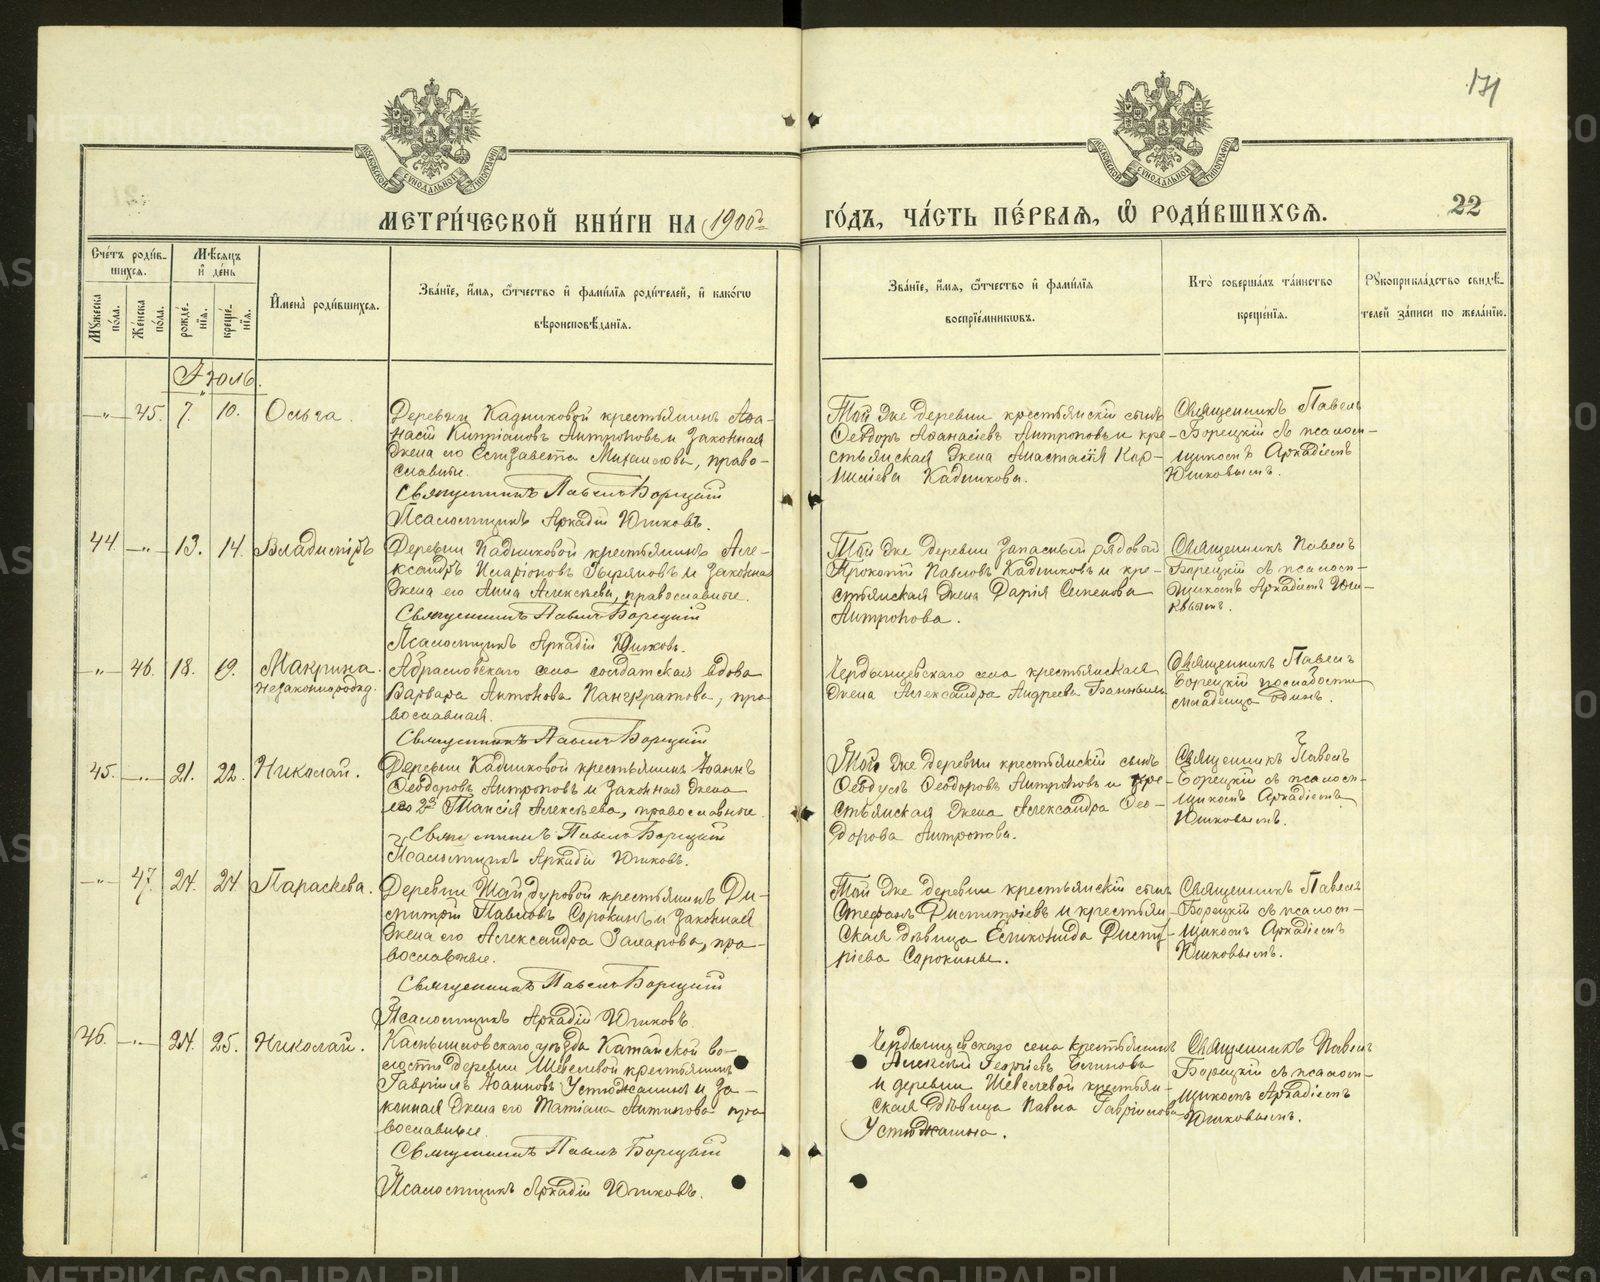 171
МОСКОВСКОЙ СѴНОДАЛЬНОЙ ТИПОГРАФІИ
МОСКОВСКОЙ СѴНОДАЛЬНОЙ ТИПОГРАФІИ
МЕТРИ́ЧЕСКОЙ КНИ́ГИ НА 1900й
ГО́ДЪ, ЧА́СТЬ ПЕ́РВАѦ, Ѿ РОДИ́ВШИХСѦ.
22
Сче́тъ роди́в-
шихся.
Мѣ́сяцъ
и де́нь
Му́жеска по́ла.
Же́нска по́ла.
рожде́-нія.
креще́-нія.
Имена̀ роди́вшихся.
Зва́ніе, и́мя, ѻ́тчество и фами́лія роди́телей, и како́гѡ
вѣроисповѣ́данія.
Зва́ніе, и́мя, ѻ́тчество и фами́лія
воспріе́мникѡвъ.
Кто̀ соверша́лъ та́инство
креще́нія.
Рукоприкла́дство свидѣ́-
телей за́писи по жела́нію.
Іюль.
—„— 45. 7. 10. Ольга.
Деревни Кадниковой крестьянинъ Аѳа-
насій Кипріановъ Антроповъ и законная
жена его Елизавета Михайлова, право-
славные.
Священникъ Павелъ Борецкій
Псаломщикъ Аркадій Юшковъ.
Той же деревни крестьянскій сынъ
Ѳеодоръ Аѳанасіевъ Антроповъ и кре-
стьянская жена Анастасія Кор-
нилiева Кадникова.
Священникъ Павелъ
Борецкій съ псалом-
щикомъ Аркадіемъ
Юшковымъ.
44. —„— 13. 14. Владиміръ
Деревни Кадниковой крестьянинъ Але-
ксандръ Иларіоновъ Зыряновъ и законная
жена его Анна Алексѣева, православные.
Священникъ Павелъ Борецкій
Псаломщикъ Аркадій Юшковъ.
Той же деревни запасный рядовый
Прокопій Павловъ Кадниковъ и кре-
стьянская жена Дарія Семенова
Антропова.
Священникъ Павелъ
Борецкій съ псалом-
щикомъ Аркадіемъ Юш-
ковымъ.
—„— 46. 18. 19. Макрина.
Незаконнорожд.
Абрамовскаго села солдатская вдова
Варвара Антонова Панкратова, пра-
вославная.
Священникъ Павелъ Борецкій
Чердынцевскаго села крестьянская
жена Александра Андреева
Священникъ Павелъ
Борецкій по слабости
младенца одинъ.
45. —„— 21. 22. Николай.
Деревни Кадниковой крестьянинъ Іоаннъ
Ѳеодоровъ Антроповъ и законная жена
его 2я Таисія Алексѣева, православные.
Священникъ Павелъ Борецкій
Псаломщикъ Аркадій Юшковъ.
Той же деревни крестьянскій сынъ
Ѳеодулъ Ѳеодоровъ Антроповъ и кре-
стьянская жена Александра Ѳео-
дорова Антропова.
Священникъ Павелъ
Борецкій съ псалом-
щикомъ Аркадіемъ
Юшковымъ.
—„— 47. 24. 24. Параскева.
Деревни Шайдуровой крестьянинъ Ди-
митрій Павловъ Сорокинъ и законная
жена его Александра Захарова, пра-
вославные.
Священникъ Павелъ Борецкій
Псаломщикъ Аркадій Юшковъ.
Той же деревни крестьянскій сынъ
Стефанъ Димитріевъ и крестьян-
ская дѣвица Еликонида Димит-
ріева Сорокины.
Священникъ Павелъ
Борецкій съ псалом-
щикомъ Аркадіемъ
Юшковымъ.
46. —„— 24. 25. Николай.
Камышловскаго уѣзда Катайской во-
лости деревни Шевелевой крестьянинъ
Гавріилъ Іоанновъ Устюжанинъ и за-
конная жена его Татіана Антипова пра
вославные.
Священникъ Павелъ Борецкій
Псаломщикъ Аркадій Юшковъ.
Чердынцевскаго села крестьянинъ
Алексѣй Георгіевъ Блиновъ
и деревни Шевелевой крестьян-
ская дѣвица Павла Гавріилова
Устюжанина.
Священникъ Павелъ
Борецкій съ псалом-
щикомъ Аркадіемъ
Юшковымъ.
METRIKI.GASO-URAL.RU